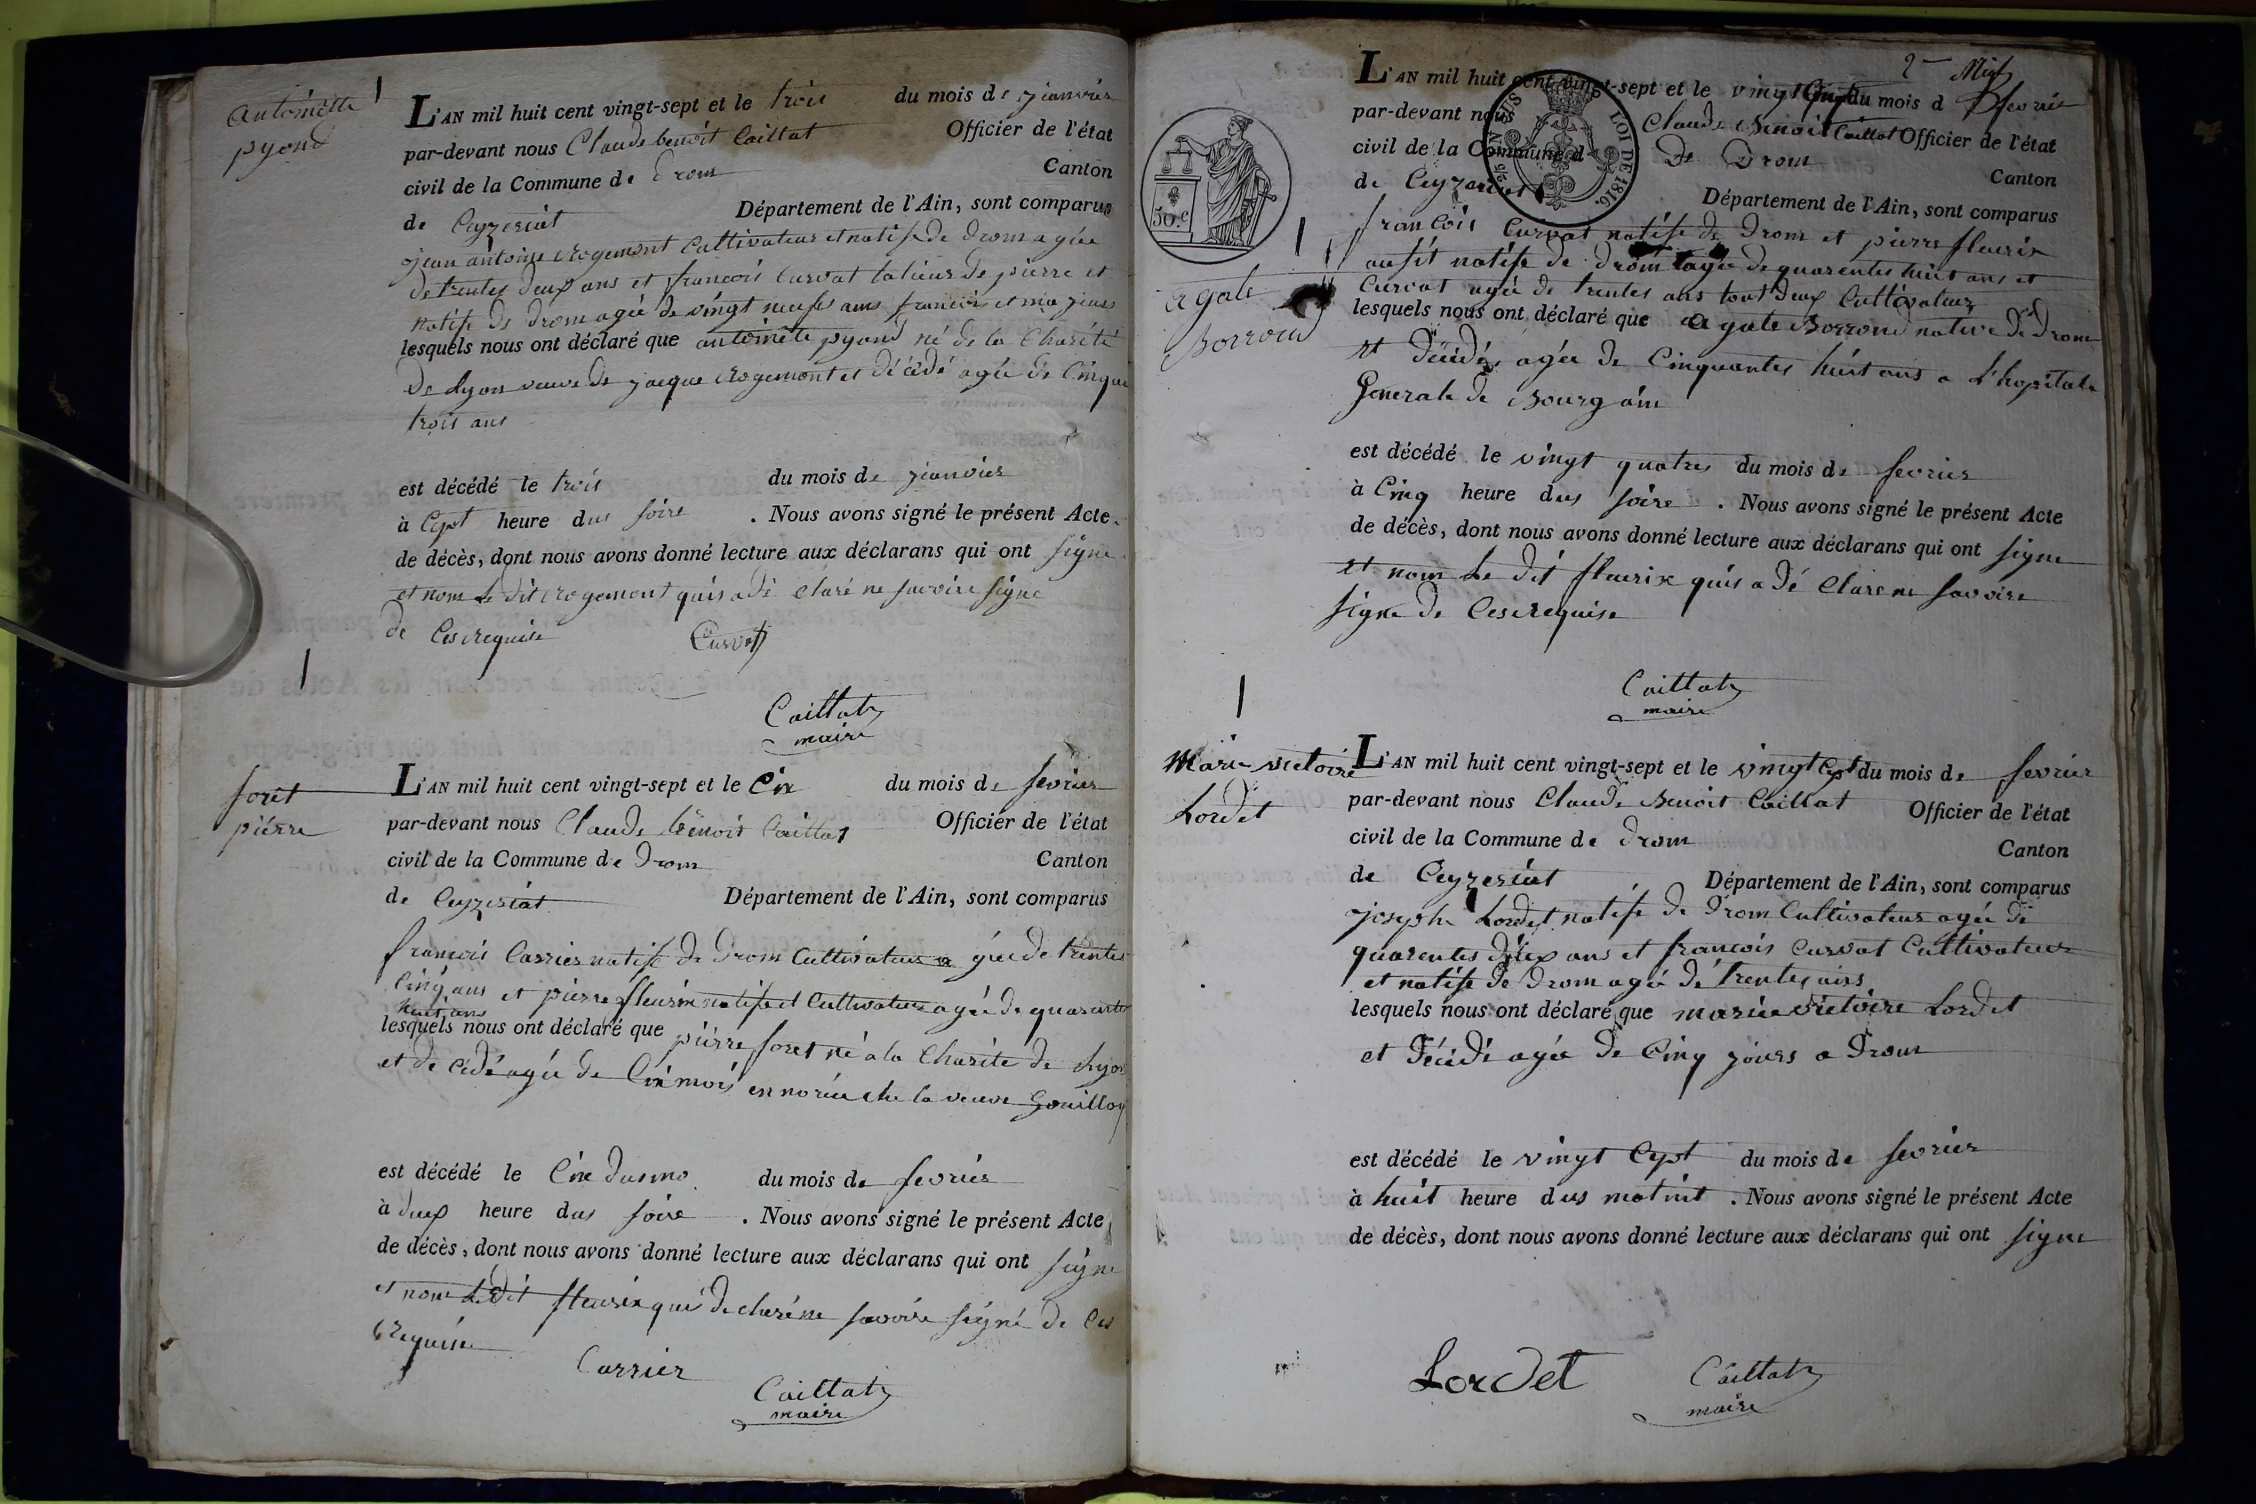 antoinette
pyond
L'AN mil huit cent vingt-sept et le trois du mois de jianvier
par-devant nous Claude benoit Caillat Officier de l'état
civil de la Commune de Drom Canton
de Ceyzeriat Département de l'Ain, sont comparus
jean antoine Rogemont Cultivateur et natife de Drom agée
de trentes deux ans et francois Curvat talieur de pierre et
natife de Drom agée de vingt neufs ans francois et majeurs
lesquels nous ont déclaré que antoinete pyond né de la Charité
de Lyon veuve de jacque Rogemont et décédé agée de Cinque
trois ans
est décédé le trois du mois de jianvier
à Cept heure dus soire . Nous avons signé le présent Acte
de décès, dont nous avons donné lecture aux déclarans qui ont signe
et nom Le dit Rogemont quis a dé claré ne savoire signe
de Ces requise Curvat
Caillat
maire
foret
piérre
L'AN mil huit cent vingt-sept et le Cix du mois de fevrier
par-devant nous Claude benoit Caillat Officier de l'état
civil de la Commune de Drom Canton
de Ceyzeriat Département de l'Ain, sont comparus
francois Carrier natife de Drom Cultivateur a gée de trentes
Cinq ans et pierre fleurix natife et Cultivateur agée de quarantes
huit ans
lesquels nous ont déclaré que piérre foret né a la Charite de Lyon
et de cédé agée de Cix mois en norice che la veuve Gouilloy
est décédé le Cix dusmo du mois de fevrier
à deux heure dus soire . Nous avons signé le présent Acte
de décès, dont nous avons donné lecture aux déclarans qui ont signe
et nom Le dit fleurix qui de claré ne savoire signé de Ces
requise
Carrier
Caillat
maire
2me
L'AN mil huit cent vingt-sept et le vingt du mois d fevrie
par-devant nous Claude Benoit Caillat Officier de l'état
civil de la Commune d de Drom Canton
de Ceyzeriat Département de l'Ain, sont comparus
LOI DE 1816.
50.c
francois Curvat natife de Drom et pierre flaurix
ausit natife de drom agée de quarentes huit ans et
Curvat agée de trentes ans tout deux Cultivateur
agate
Borrond
lesquels nous ont déclaré que agate Borrond native de Drom
et décédé agée de Cinquantes huit ans a L'hopitale
Generale de Bourg ain
est décédé le vingt quatres du mois de fevrier
à Cinq heure dus soire . Nous avons signé le présent Acte
de décès, dont nous avons donné lecture aux déclarans qui ont signe
et nom Le dit flaurix quis a dé Clare ne savoire
signe de Ces requise
Caillat
maire
Marie victoire
Lordet
L'AN mil huit cent vingt-sept et le vingt Cept du mois de fevrier
par-devant nous Claude Benoit Caillat Officier de l'état
civil de la Commune de Drom Canton
de Ceyzeriat Département de l'Ain, sont comparus
joseph Lordet natife de Drom Cultivateur agée de
quarentes ans et francois Curvat Cultivateur
et natife de Drom agée de trentes ans
lesquels nous ont déclaré que mariee victoire Lordet
et décédé agée de Cinq jours a Drom
est décédé le vingt Cept du mois de fevrier
à huit heure dus matint . Nous avons signé le présent Acte
de décès, dont nous avons donné lecture aux déclarans qui ont signe
Lordet
Caillat
maire